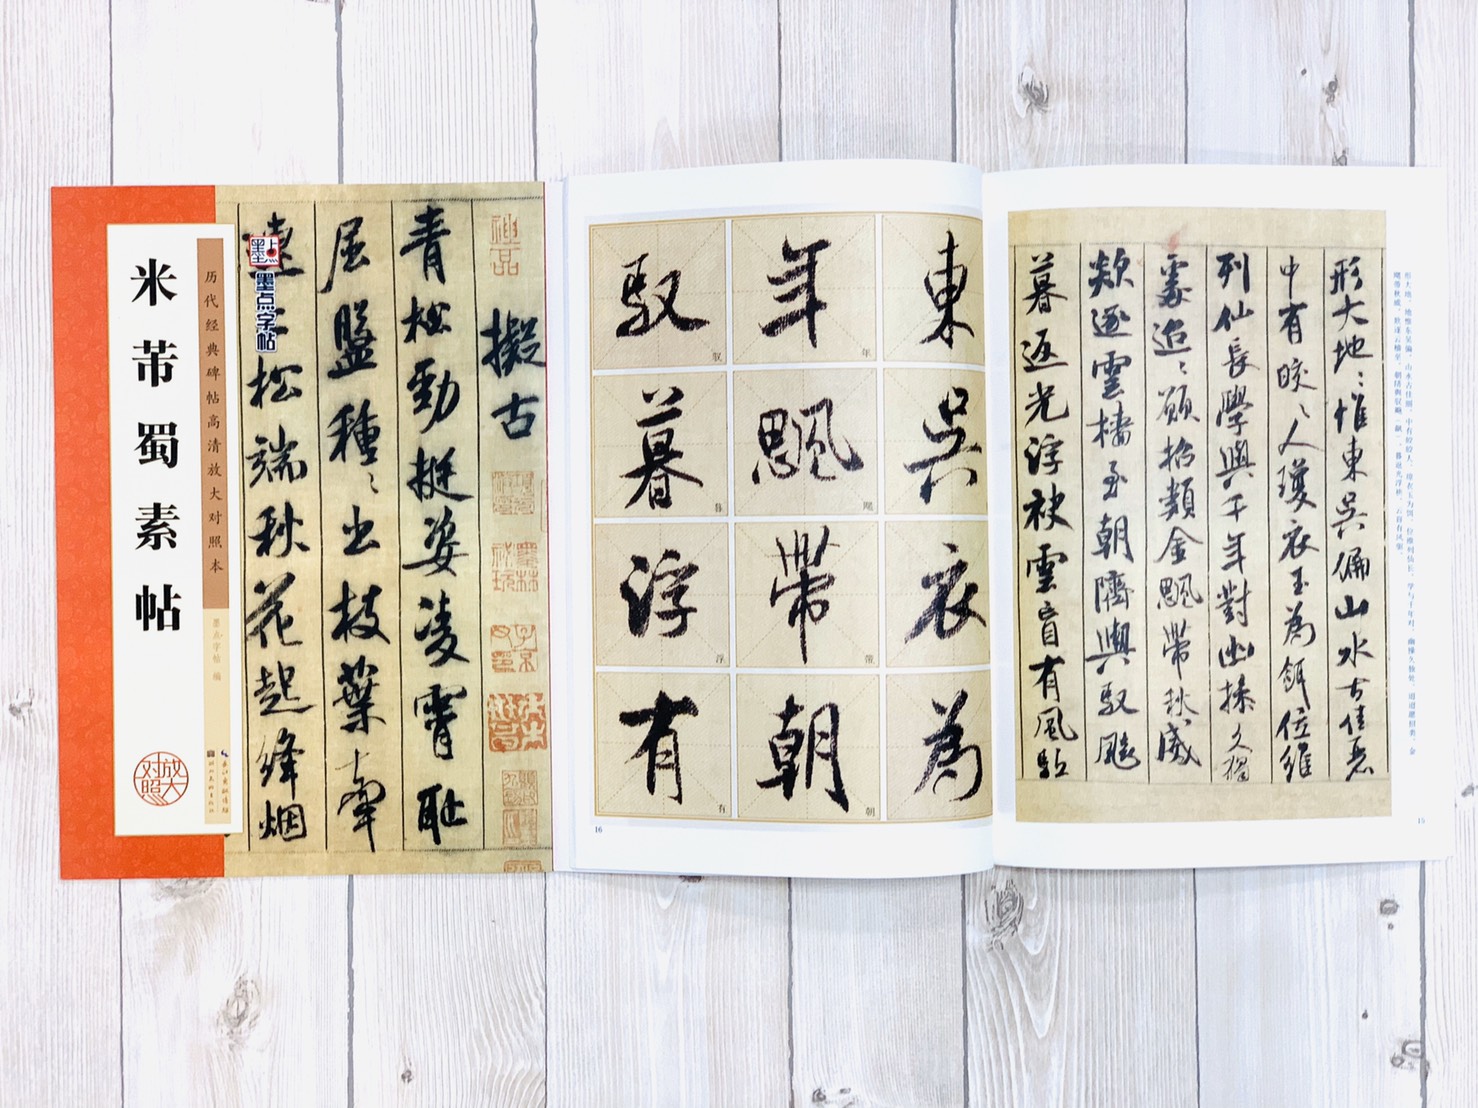 米芾蜀素帖
历代经典碑帖高清放大对照本
墨点字帖 编
放大对照
墨点
墨点字帖
擬古
青松勁挺姿凌霄恥
屈盤種〻出枝葉牽
連上松端秋花起絳烟
東吳衣為
年颸帶朝
馭暮浮有
16
形大地〻惟東吳偏山水古佳麗
中有皎〻人瓊衣玉為餌位維
列仙長學與千年對幽操久獨
處迢〻願招類金颸帶秋威
欻逐雲檣至朝隮與馭飈
暮返光浮袂雲肓有風馭
15